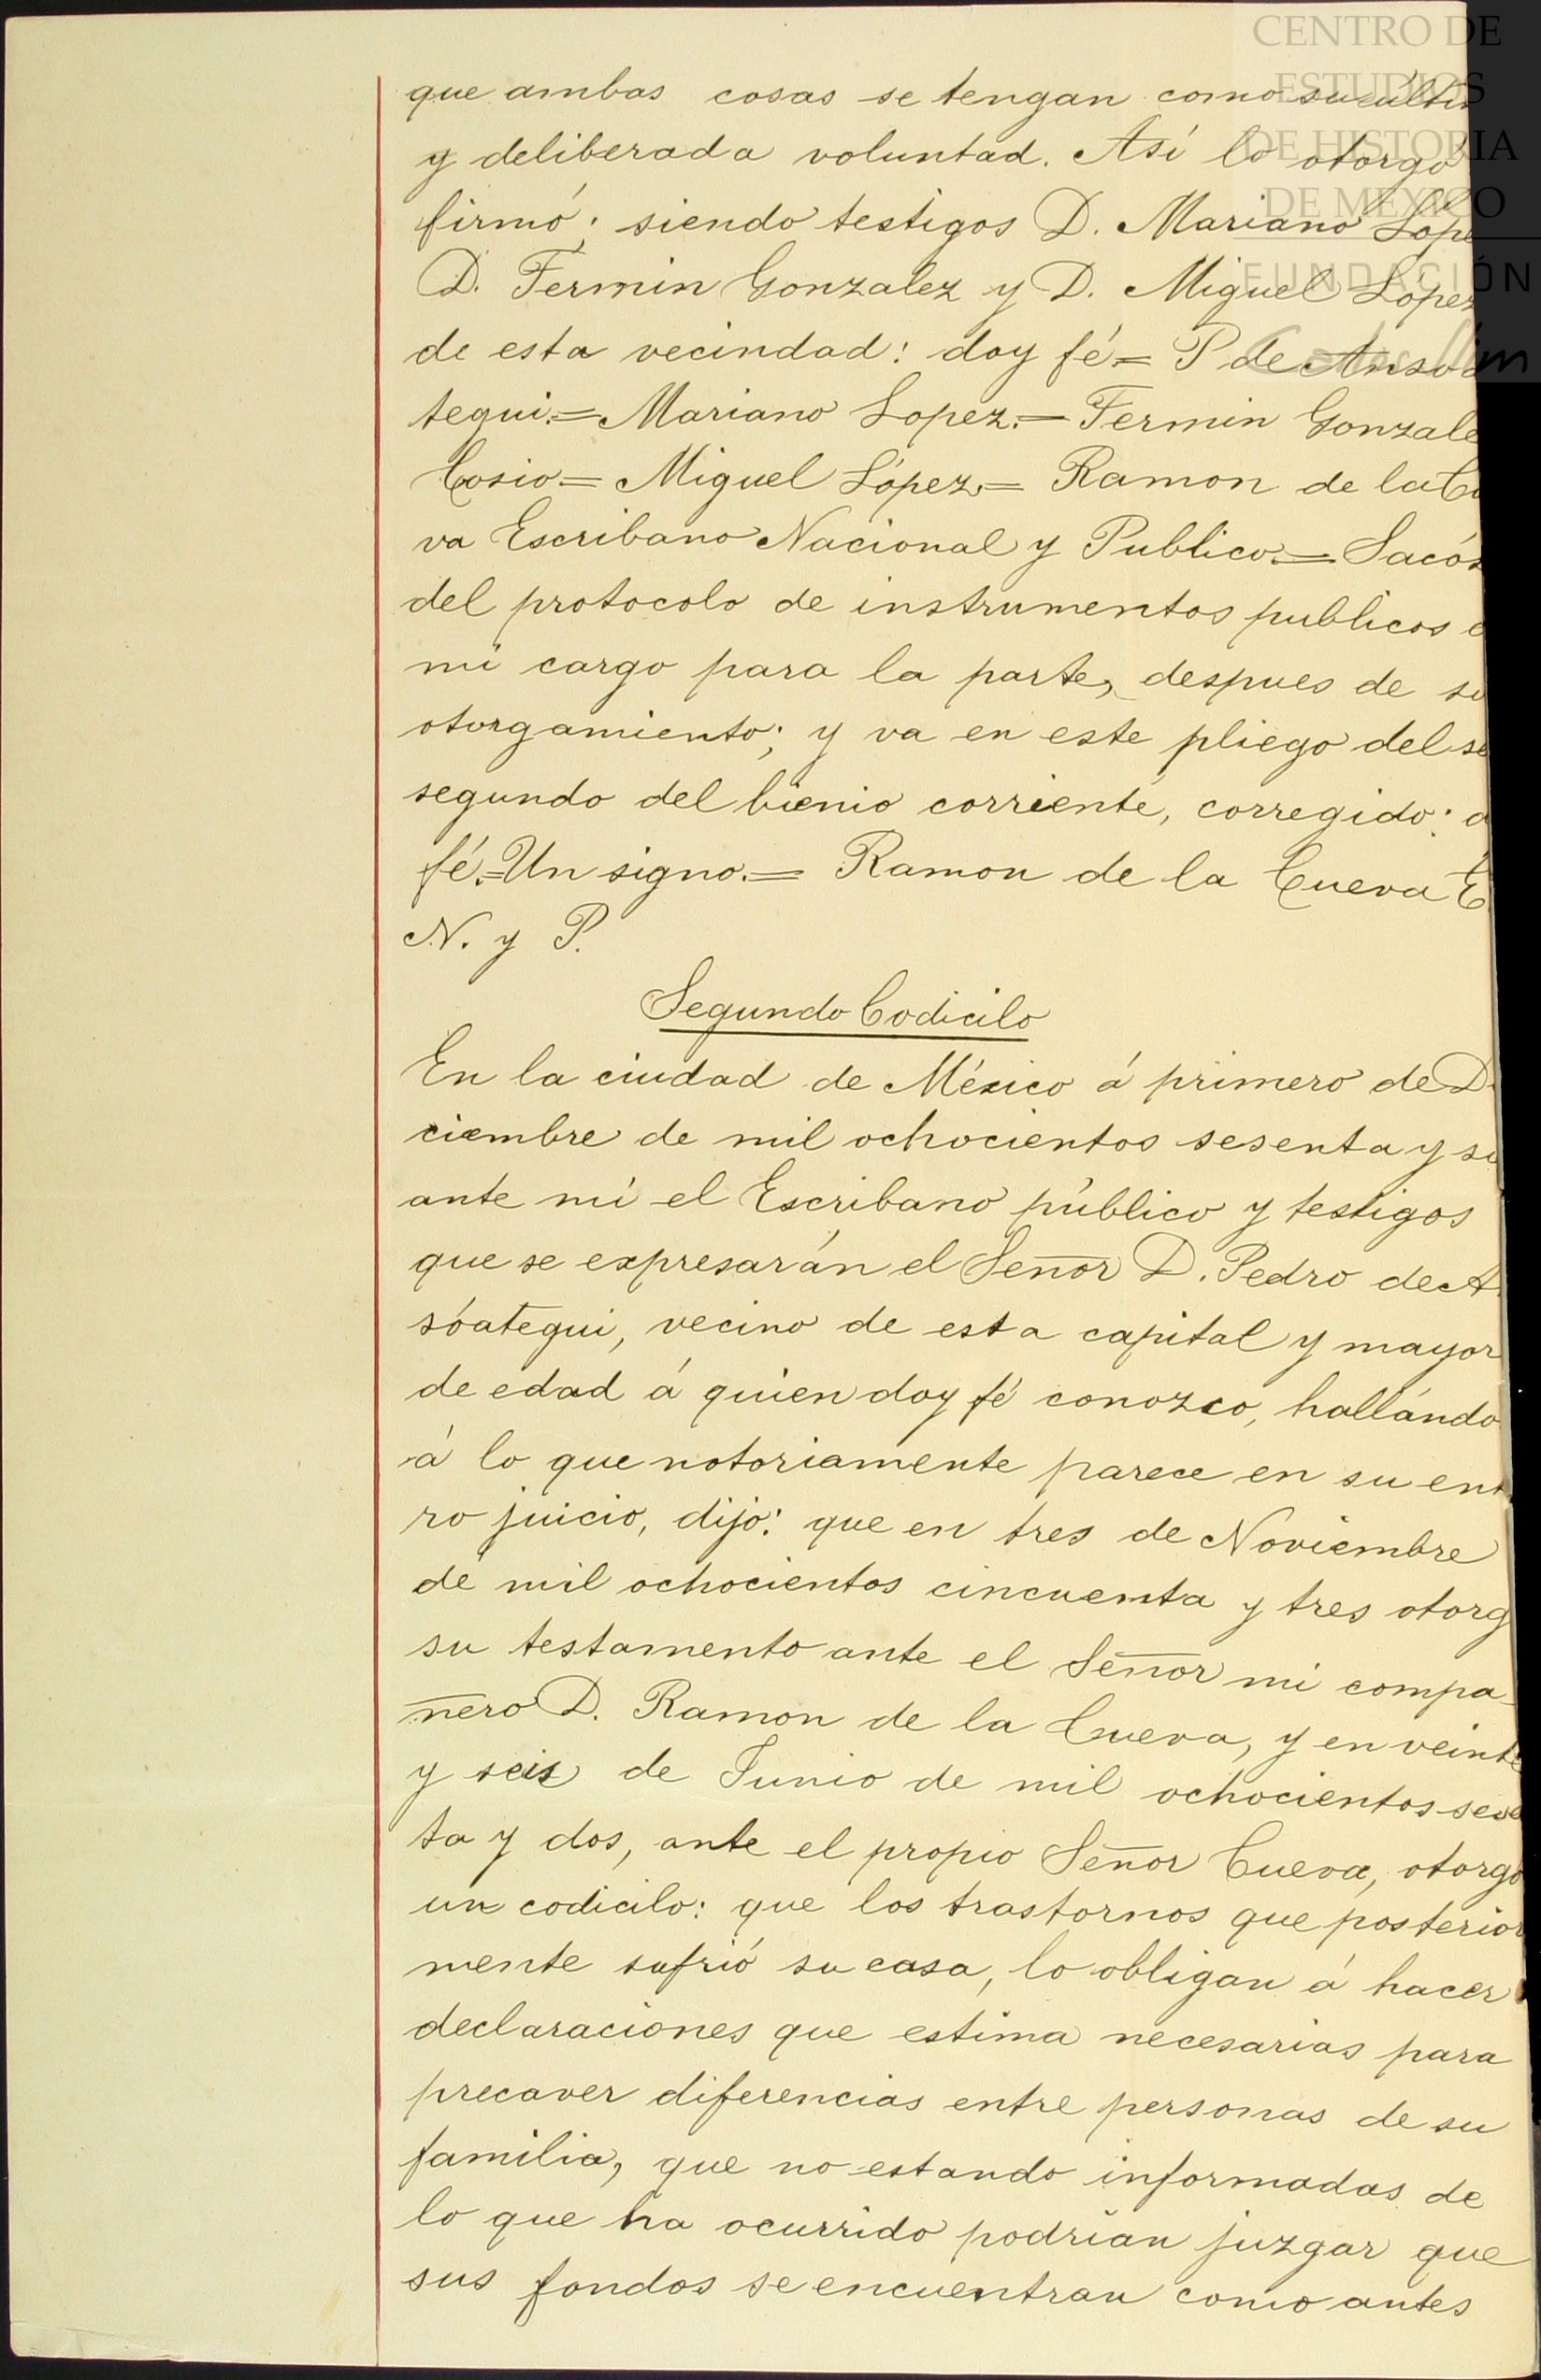 que ambas cosas se tengan como su últi
y deliberada voluntad. Así lo otorgó
firmó; siendo testigos D. Mariano Lópe
D. Fermin Gonzalez y D. Miguel Lopez
de esta vecindad: doy fé.= P de Ansoa
tegui.= Mariano Lopez.= Fermin Gonzale
Cosio= Miguel López.= Ramon de la Cu
va Escribano Nacional y Publico.= Sacós
del protocolo de instrumentos publicos
mi cargo para la parte, despues de su
otorgamiento; y va en este pliego del se
segundo del bienio corriente, corregido: d
fé.=Un signo.= Ramon de la Cueva E
N. y P.
Segundo Codicilo
En la ciudad de México á primero de D
ciembre de mil ochocientos sesenta y se
ante mi el Escribano público y testigos
que se expresarán el Señor D. Pedro de A
sóategui, vecino de esta capital y mayor
de edad á quien doy fé conozco, hallándo
á lo que notoriamente parece en su ent
ro juicio, dijo: que en tres de Noviembre
de mil ochocientos cincuenta y tres otorg
su testamento ante el Señor mi compa-
ñero D. Ramon de la Cueva, y en veinte
y seis de Junio de mil ochocientos sese
ta y dos, ante el propio Señor Cueva, otorgo
un codicilo: que los trastornos que posterior
mente sufrió su casa, lo obligan á hacer
declaraciones que estima necesarias para
precaver diferencias entre personas de su
familia, que no estando informadas de
lo que ha ocurrido podrían juzgar que
sus fondos se encuentran como antes
CENTRO DE
ESTUDIOS
DE HISTORIA
DE MÉXICO
FUNDACIÓN